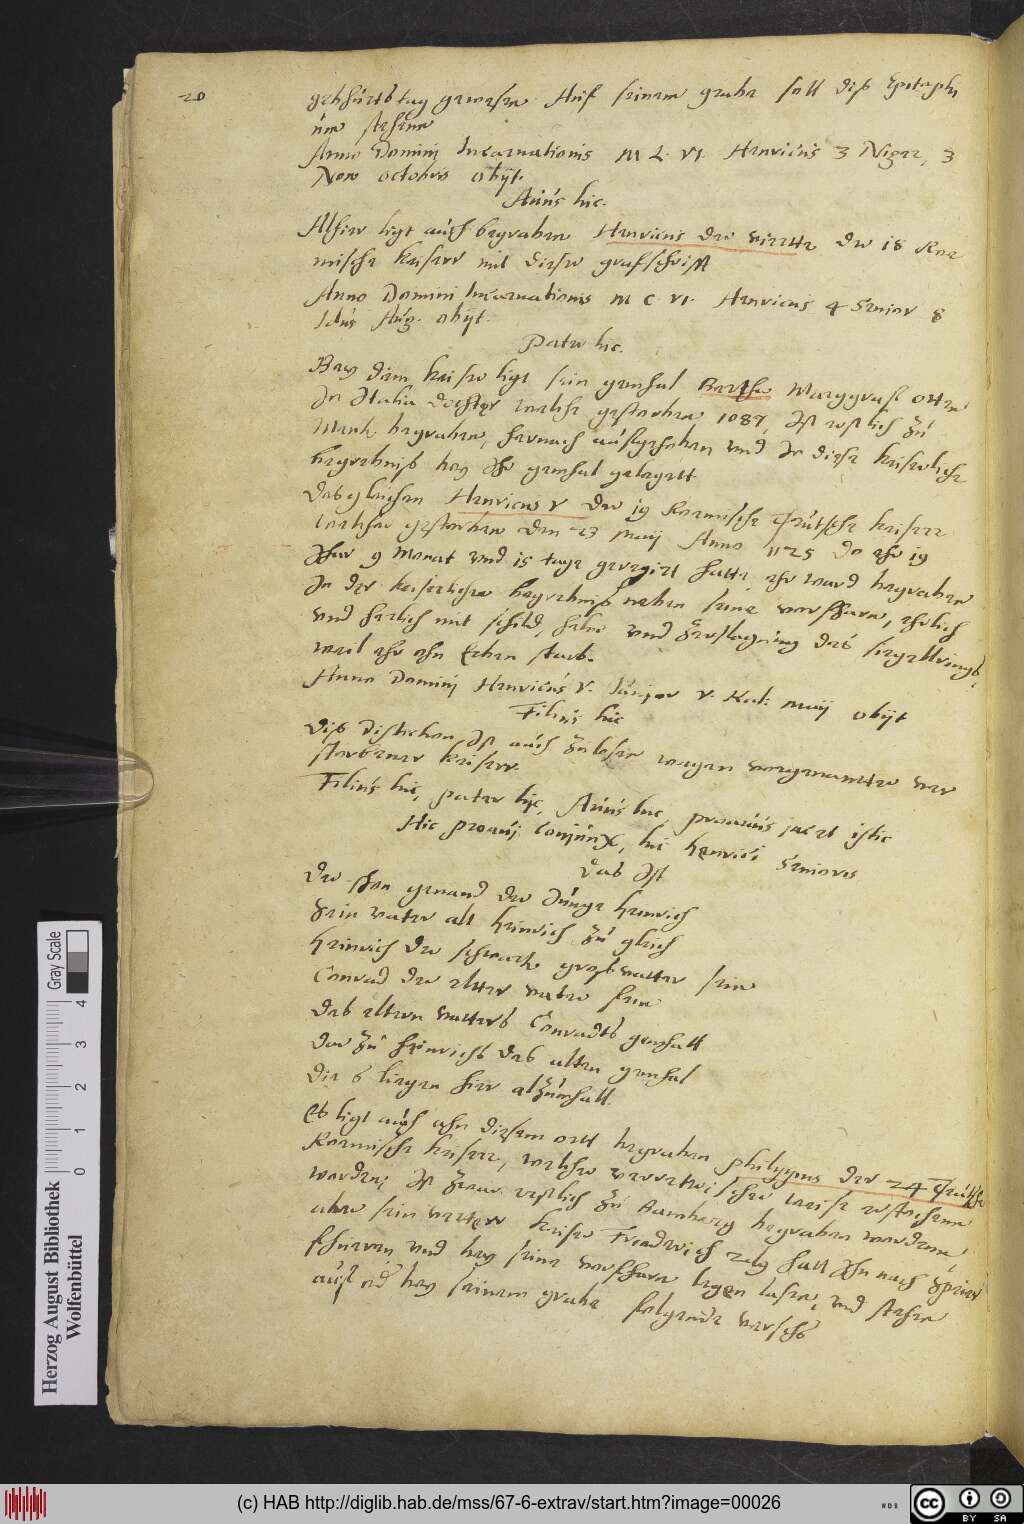 20
gebhürtstag gewesen. Auf seinem grabe soll diß Epitaphi
um stehenn
Anno Domini Incarnationis M L VI. Henricus 3 Niger, 3
Non octobris obijt.
Auus hic.
Alhier ligt auch begraben Henricus der viertte der 18 Roe
mische keiserr mit dieser grabschrifft
Anno Domini Incarnationis M C VI. Henricus 4 Senior 8
Idus Aug. obijt.
Pater hic.
Bey dem keiser ligt sein gemhal Bertha Marggraff Otten
In Italia dochter welche gestorben 1087, Ist erstlich zu
begraben, hernach aufgehaben und In diese keiserliche
begrebniß bey Ihr gemhal gelegett
Desgleichen Henricus V der 19 Roemische Teutsche keiserr
welcher gestorben den 23 Maij Anno 1125 do ehr 19
Jhar 9 Monat und 15 tage geregirt hatte, ehr ward begraben
In der keiserlichen begrebniß neben seine vorfharn, ehrlich
und herlich mit schild, helm und des siegellrings,
weil ehr ohn Erben starb.
Anno Domini Henricus V. Junior V. Kal: Maij obijt
Filius hic
Diß Distichon Ist auch zulesen wegen vorgenantten ver
storbener keiserr.
Filius hic, pater hic, Auus hic, proauus jacet istic
Hic proaui conjunx, hic Henrici Senioris
Das Ist
Der shon genand der Junge heinrich
Sein vater alt heinrich zu gleich
Heinrich der schwartz grosvatter sein
Conrad der elter vater sein
Des eltern vatters Conradts gemhall
Dar zu heinrichs des alten gemhal
Die 6 liegen hier alzumhall.
Es ligt auch ahn diesem ortt begraben philippus der 24 Teutsche
Roemische keiserr, welcher verretterischer weise erstochenn
worden, Ist zwar erstlich zu Bamberg begraben wordenn,
aber sein vetterr keiser Friedrich hatt Ihn nach Speier
fhueren und bey seine vorfharn legen lasen, und stehen
auch bey seinem grabe folgende versch
Herzog August Bibliothek
Wolfenbüttel
Gray Scale
0 1 2 3 4
(c) HAB http://diglib.hab.de/mss/67-6-extrav/start.htm?image=00026
WDB
CC BY SA